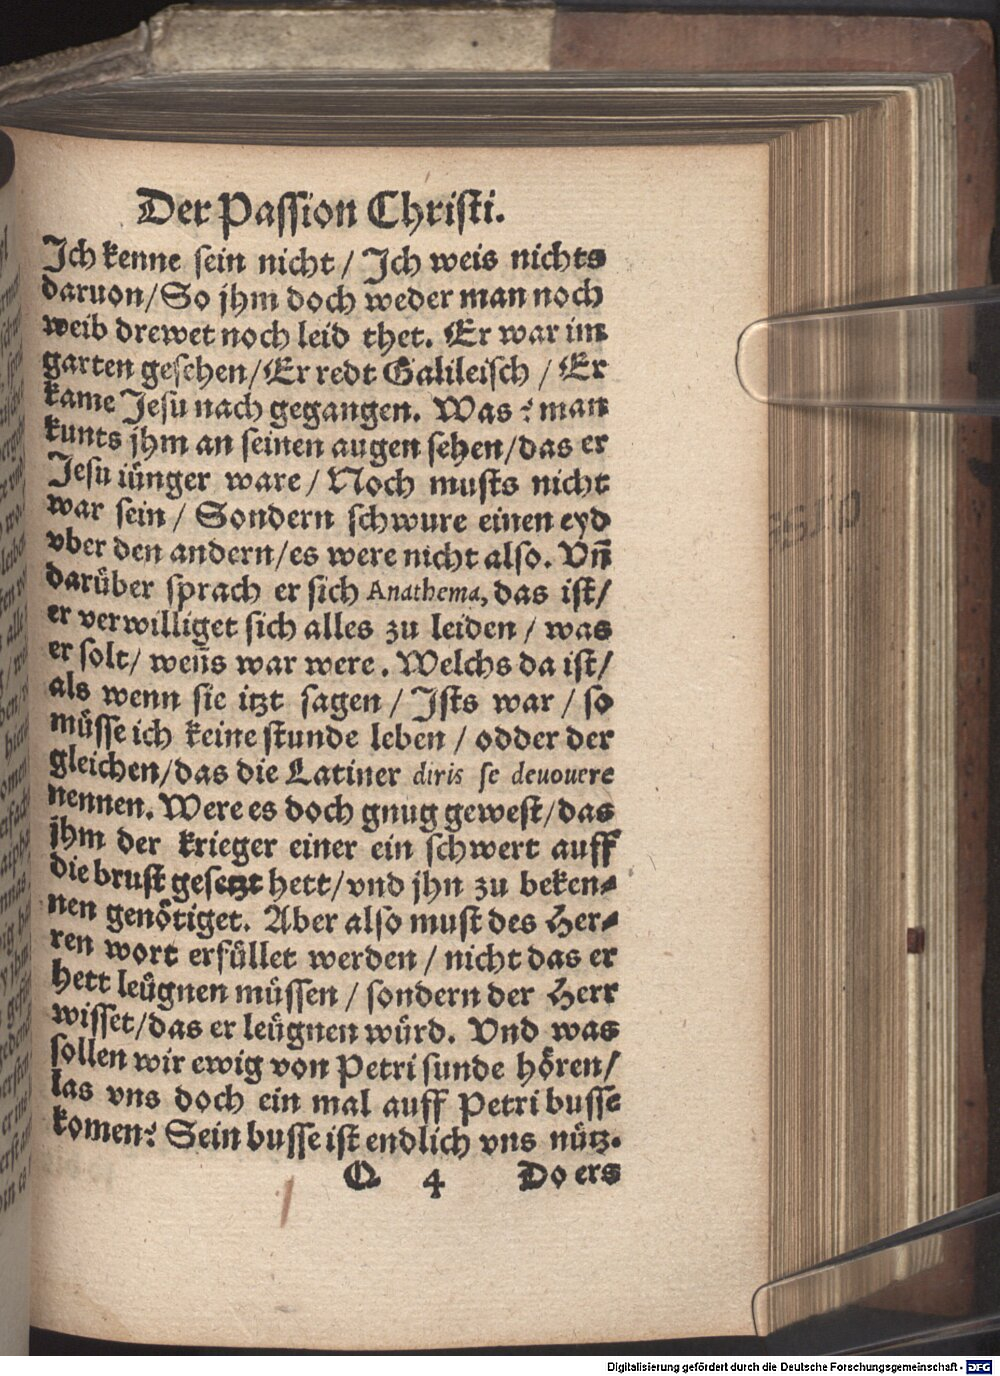 Der Passion Christi.
Ich kenne sein nicht / Ich weis nichts
daruon/So jhm doch weder man noch
weib drewet noch leid thet. Er war im
garten gesehen/Er redt Galileisch / Er
kame Jesu nach gegangen. Was? man
kunts jhm an seinen augen sehen/das er
Jesu iünger ware / Noch musts nicht
war sein / Sondern schwure einen eyd
vber den andern/es were nicht also. Vñ
darüber sprach er sich Anathema, das ist/
er verwilliget sich alles zu leiden / was
er solt/ weñs war were. Welchs da ist/
als wenn sie itzt sagen / Ists war / so
müsse ich keine stunde leben / odder der
gleichen/das die Latiner diris se deuouere
nennen. Were es doch gnug gewest/das
jhm der krieger einer ein schwert auff
die brust gesetzt hett/vnd jhn zu beken⸗
nen genötiget. Aber also must des Her⸗
ren wort erfüllet werden / nicht das er
hett leügnen müssen / sondern der Herr
wisset/das er leügnen würd. Vnd was
sollen wir ewig von Petri sunde hören/
las vns doch ein mal auff Petri busse
komen? Sein busse ist endlich vns nütz.
Q 4 Do ers
Digitalisierung gefördert durch die Deutsche Forschungsgemeinschaft - DFG